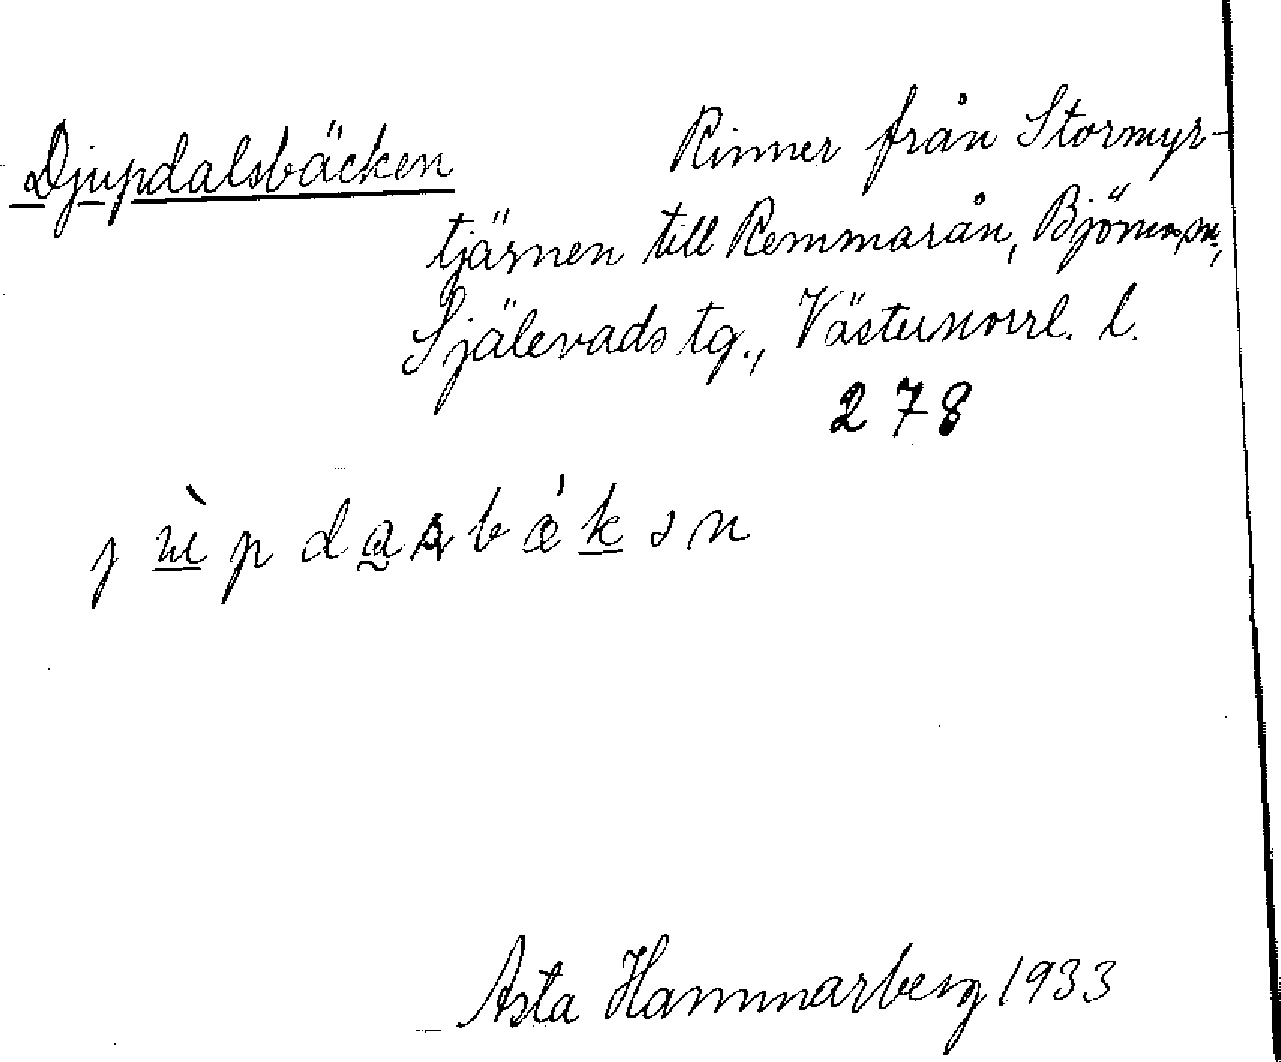 Djupdalsbäcken Rinner från Stormyr-
tjärnen till Remmarån, Björna sn,
Själevads tg., Västernorrl. l.
278
Asta Hammarberg 1933